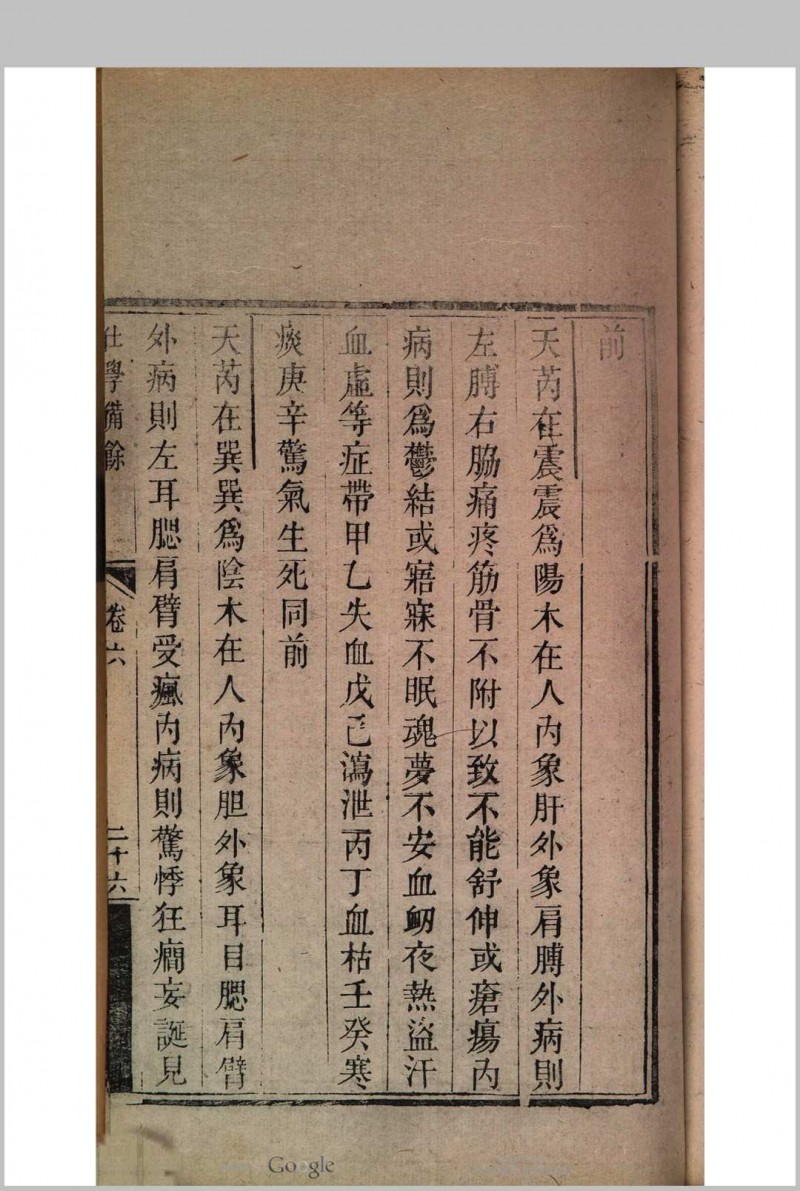 前
天芮在震震爲陽木在人內象肝外象肩膊外病則
左膊右脇痛疼筋骨不附以致不能舒伸或瘡瘍內
病則爲鬱結或寤寐不眠魂夢不安血衂夜熱盜汗
血虛等症帶甲乙失血戊己瀉泄丙丁血枯壬癸寒
痰庚辛驚氣生死同前
天芮在巽巽爲陰木在人內象胆外象耳目腮肩臂
外病則左耳腮肩臂受瘋內病則驚悸狂癎妄誕見
仕學備餘 卷六 二十六
Google